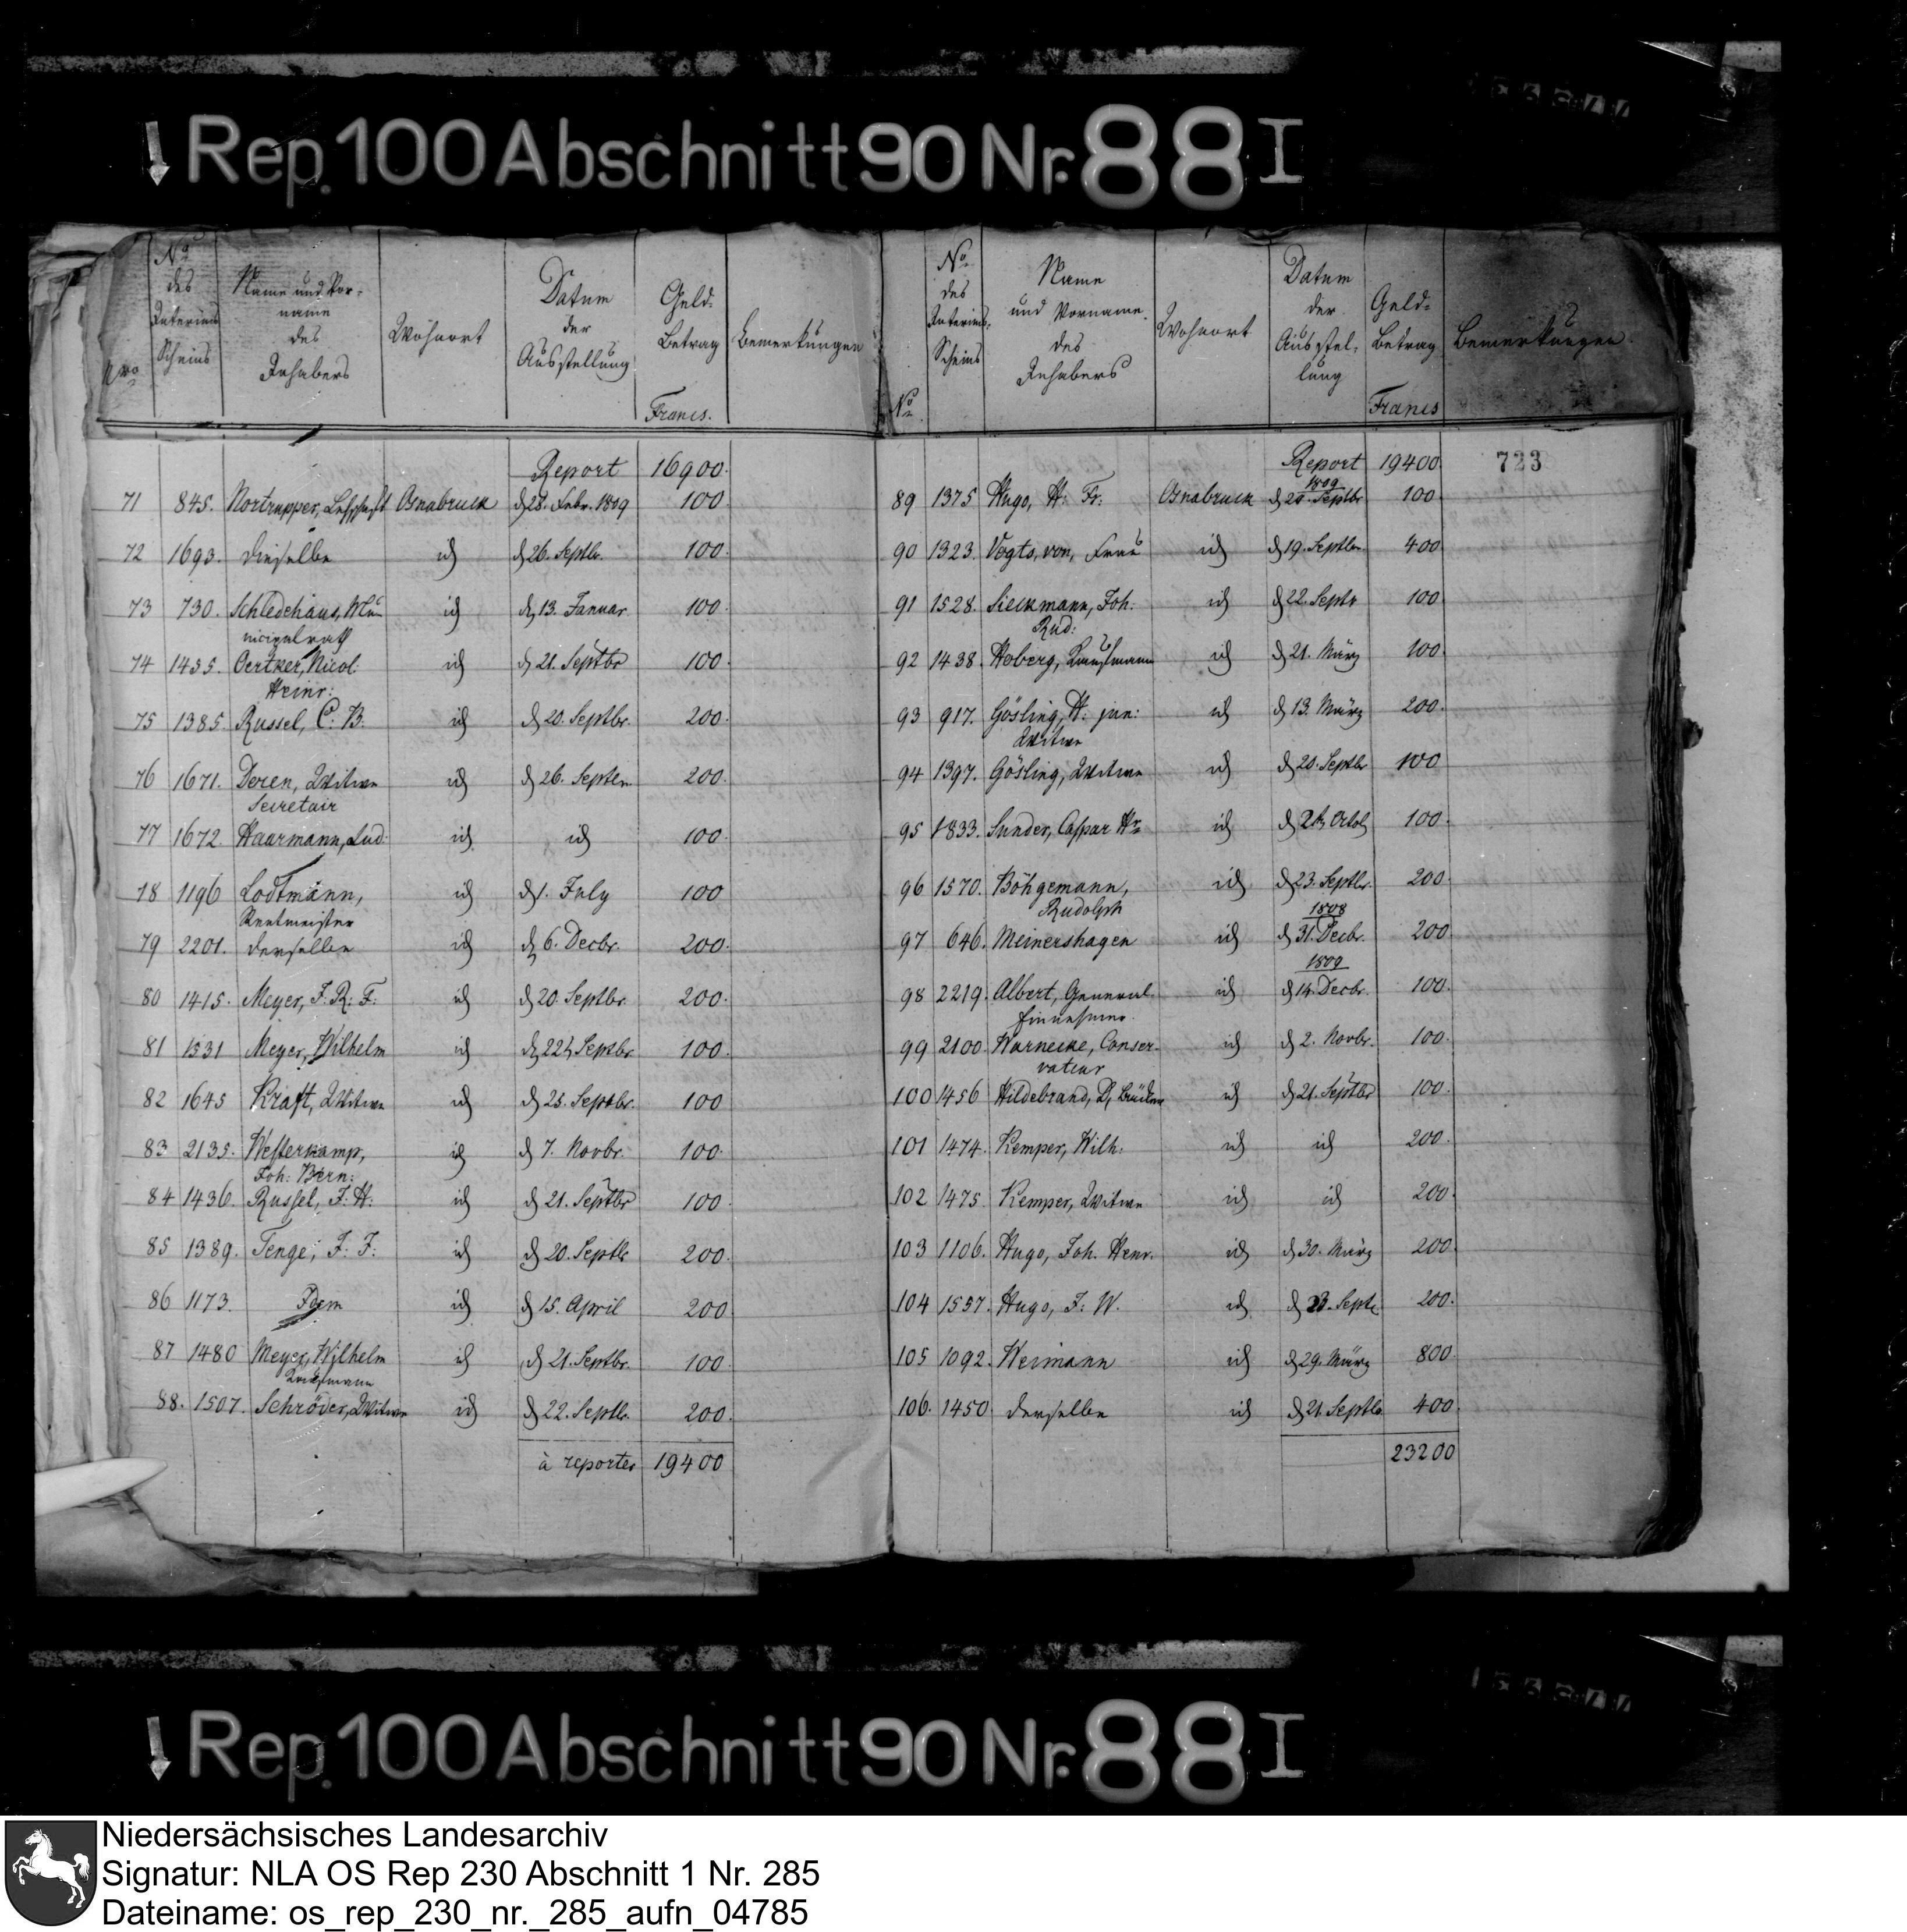 Rep. 100 Abschnitt 90 Nr. 88 I
Nro
No des Interims Scheins
Name und Vorname des Inhabers
Wohnort
Datum der Ausstellung
Geld-Betrag
Francs.
Bemerkungen
Report 16900.
71 845. Nortrupper, Osnabruck d 28. Febr. 1809 100
72 1693. Dieselbe id d 26. Septbr. 100.
73 730. Schledehaus, Mu- id d 13. Januar 100.
nicipalrath
74 1435. Oertker, Nicol. id d 21. Septbr 100.
Heinr:
75 1385. Russel, C: B: id d 20. Septbr. 200.
76 1671. Deren, Witwe id d 26. Septbr. 200.
Secretair
77 1672. Haarmann, Lud: id id 100.
78 1196 Lodtmann, id d 1. July 100
Rentmeister
79 2201. derselbe id d 6. Decbr. 200.
80 1415. Meyer, F: R: F: id d 20. Septbr. 200.
81 1531 Meyer, Wilhelm id d 22t Septbr 100.
82 1645 Kraft, Witwe id d 25. Septbr. 100
83 2135. Westerkamp, id d 7. Novbr. 100.
Joh: Bern:
84 1436. Russel, J: H: id d 21. Septbr 100.
85 1389. Tenge, F: F: id d 20. Septbr 200.
86 1173. Idem id d 15. April 200
87 1480 Meyer, Wilhelm id d 21. Septbr. 100
Kaufmann
88. 1507. Schröder, Witwe id d 22. Septbr. 200.
à reporter 19400
No
No des Interims-Scheins
Name und Vorname des Inhabers
Wohnort
Datum der Ausstellung
Geld-Betrag
Francs
Bemerkungen.
Report 19400. 723
1809
89 1375 Hugo, H: Fr: Osnabruck d 20. Septbr 100.
90 1323. Vogts, von, Frau id d 19. Septbr 400
91 1528. Sieckmann, Joh: id d 22. Septr 100
Rud:
92 1438. Hoberg, Kaufmann id d 21. März 100.
93 917. Gösling, H: jun: id d 13. März 200.
Witwe
94 1397. Gösling, Witwe id d 20. Septbr 100
95 1833. Sunder, Caspar Hr id d 2t Octob 100.
96 1570. Böhgemann, id d 23. Septbr. 200.
Rudolph
1808
97 646. Meinershagen id d 31. Decbr. 200.
1809
98 2219. Albert, General- id d 14. Decbr. 100.
Einnehmer
99 2100. Warnecke, Conser- id d 2. Novbr. 100.
vateur
100 1456 Hildebrand, id d 21. Septbr 100.
101 1474. Kemper, Wilh: id id 200.
102 1475. Kemper, Witwe id id 200.
103 1106. Hugo, Joh. Henr. id d 30. März 200.
104 1557. Hugo, F: W. id d 23. Septr. 200.
105 1092. Weimann id d 29. März 800.
106. 1450 derselbe id d 21. Septbr 400.
23200
Rep. 100 Abschnitt 90 Nr. 88 I
Niedersächsisches Landesarchiv
Signatur: NLA OS Rep 230 Abschnitt 1 Nr. 285
Dateiname: os_rep_230_nr._285_aufn_04785